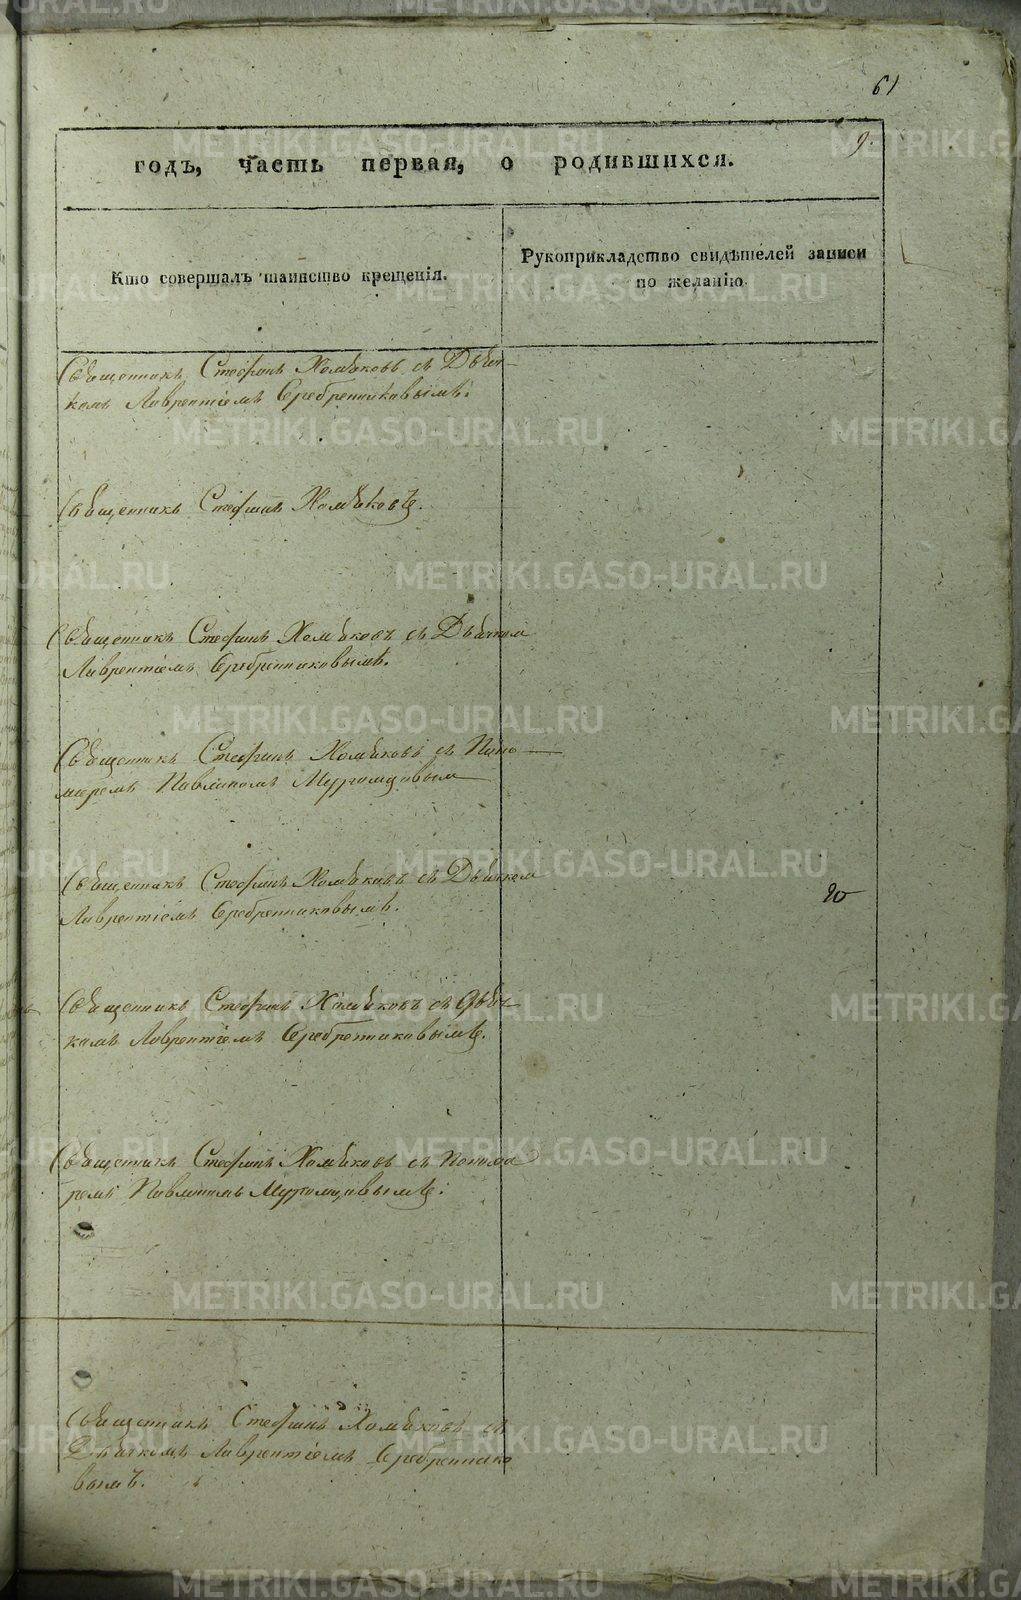 61
9.
годъ, часть первая, о родившихся.
Кто совершалъ таинство крещенія.
Рукоприкладство свидѣтелей записи
по желанію.
Священникъ Стефанъ Хомяковъ съ Дьяч-
комъ Лаврентіемъ Серебренниковымъ.
Священникъ Стефанъ Хомяковъ.
Священникъ Стефанъ Хомяковъ съ Дьячком
Лаврентіемъ Серебренниковымъ.
Священникъ Стефанъ Хомяковъ съ Поно-
маремъ Павлиномъ
Священникъ Стефанъ Хомяковъ съ Дьячком
Лаврентіемъ Серебренниковымъ.
Священникъ Стефанъ Хомяковъ съ Дьяч-
комъ Лаврентіемъ Серебренниковымъ.
Священникъ Стефанъ Хомяковъ съ Понома
ремъ Павлиномъ
Священникъ Стефанъ Хомяковъ съ
Дьячкомъ Лаврентіемъ Серебреннико
вымъ.
METRIKI.GASO-URAL.RU